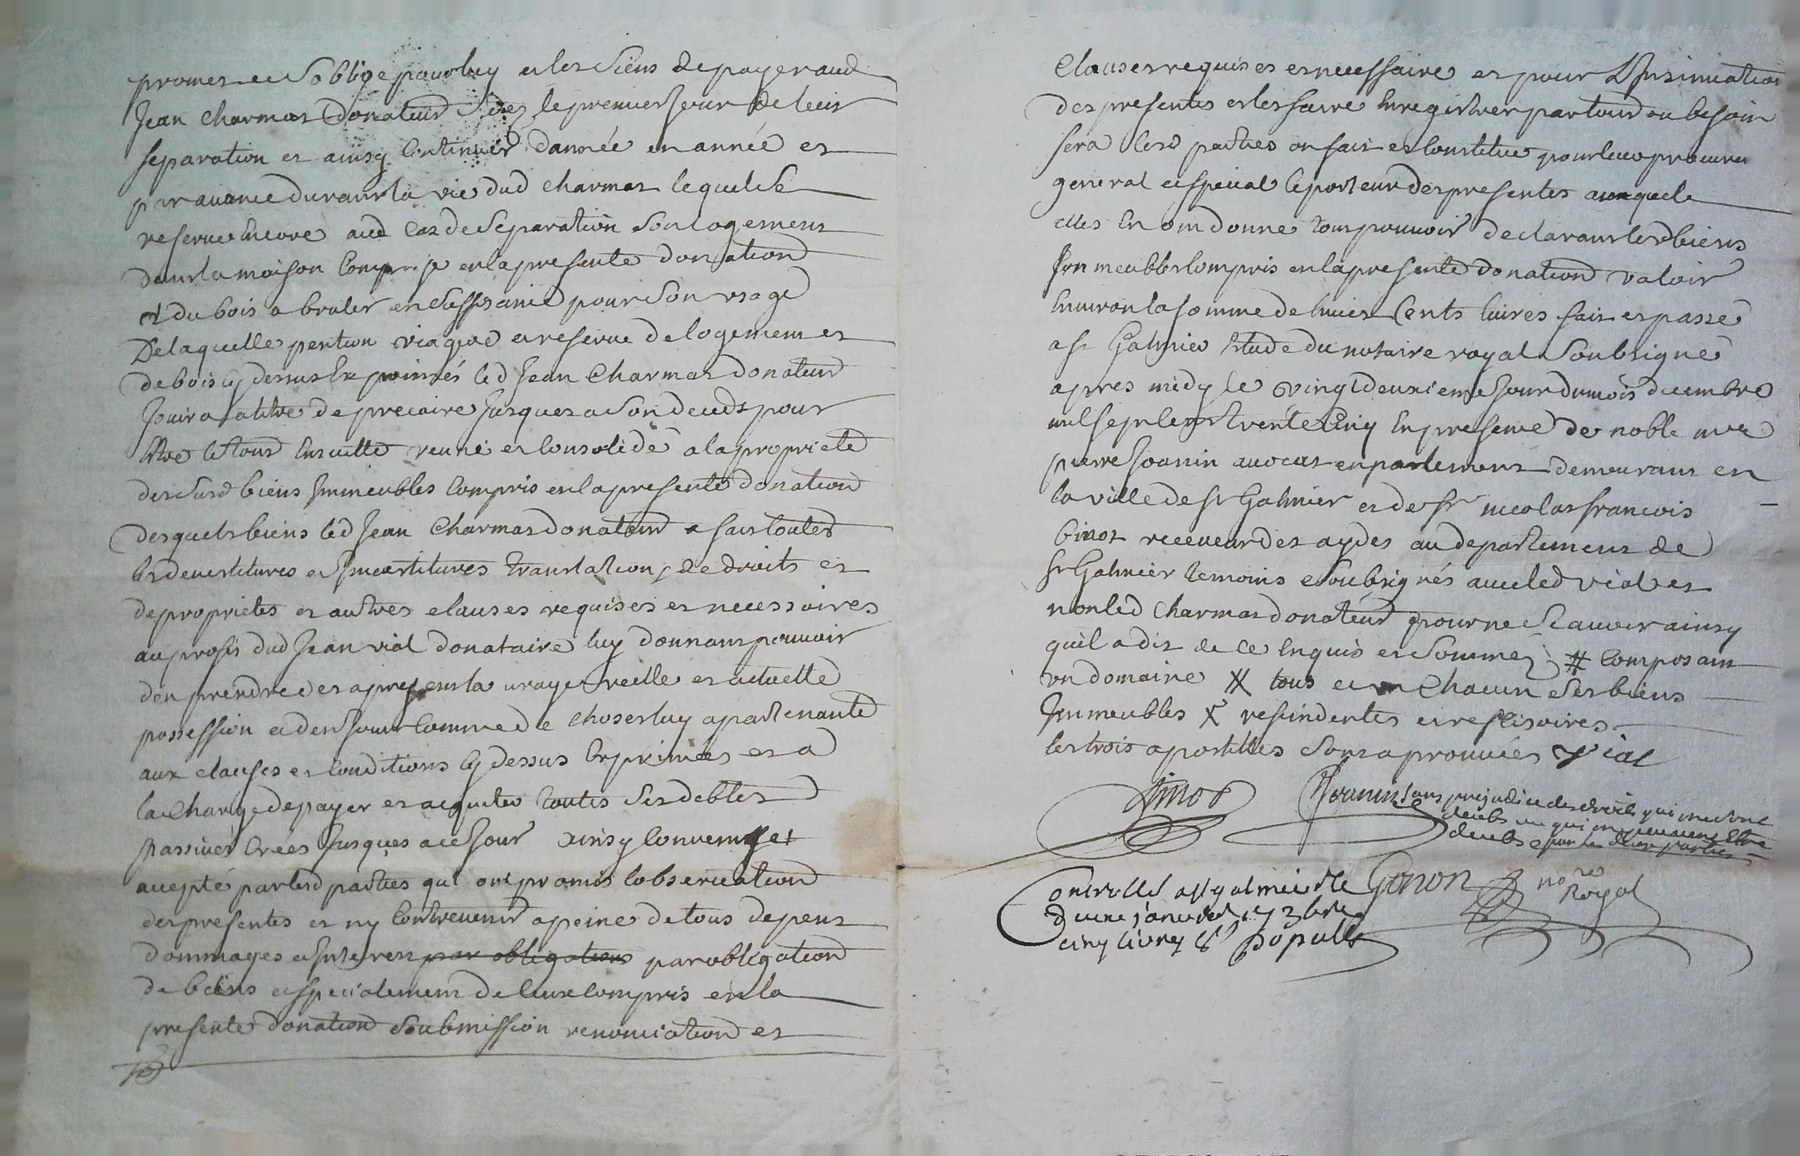 promet et soblige pour luy et les siens de payer aud
Jean Charmat Donateur dez le premier jour de leur
separation et ainsy Continuer dannée en année et
par avance durant la vie dud Charmat lequel se
reserve Encore aud Cas de separation son logement
dans la maison Comprise en la presente donation
et du bois a bruler en suffisance pour son usage
De laquelle pention viagere et reserve de logement et
de bois cy dessus Exprimés led Jean Charmat donateur
Jouira a titre de precaire Jusques a son deceds pour
Etre le tout Ensuitte reuni et Consolidé a la proprieté
des susd biens Immeubles Compris en la presente donation
desquels biens led Jean Charmat donateur a fait toutes
les devestitures et Investitures translations de droits et
de proprietes et autres clauses requises et necessaires
au profit dud Jean vial donataire luy donnant pouvoir
den prendre des apresent la vraye reelle et actuelle
possession et den Jouir Comme de chose luy apartenante
aux clauses et Conditions cy dessus Exprimées et a
la Charge de payer et acquiter toutes ses debtes
passives Crées Jusques a ce Jour ainsy Convenu et
accepté par lesd parties qui ont promis lobservation
des presentes et ny Contrevenir a peine de tous depens
dommages et Interets par obligations par obligation
de biens et specialement de ceux Compris en la
presente donation soubmission renonciation et
Clauses requises et necessaires et pour L Insinuation
des presentes et les faire Enregistrer partout ou besoin
sera lesd parties on fait et Constitué pour leur procureur
general et special le porteur des presentes auquel
elles En oin donne tout pouvoir declarant lesd biens
Immeubles Compris en la presente donation valoir
Environ la somme de huict Cents livres fait et passé
a St Galmier Etude du notaire royal soubsigné
apres midy le vingtdeuxieme Jour du mois decembre
mil sept cent trente cinq En presence de noble mre
pierre Joanin avocat en parlement demeurant en
la ville de St Galmier et de Sr nicolas francois
binot receveur des aydes au departement de
St Galmier temoins soubsignés avec led vial et
non led Charmat donateur pour ne scavoir ainsy
quil a dit de ce Enquis et sommé # Composant
un domaine # tous et un Chacun ses biens
Immeubles X rescindentes et rescisoires
les trois apostilles sont aprouvées Vial
binot Joanin sans prejudice des droits qui me sont
deubs ou qui me peuvent etre
deubs par les deux parties
Controllé a St galmier le Gonon nore
Royal
janvier 173
cinq livres